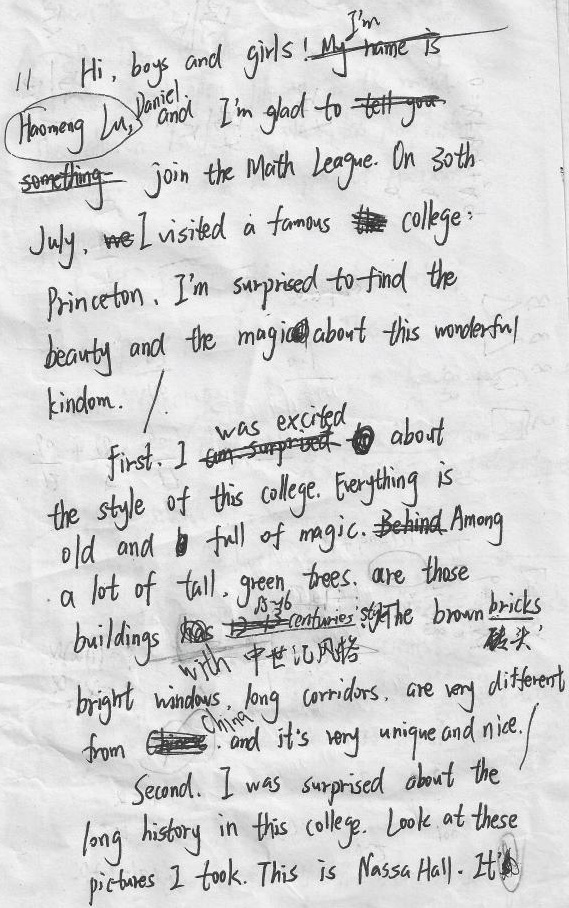 I'm
11 Hi, boys and girls! My name is
Haomeng Lu, Daniel. and I'm glad to tell you
something join the Math League. On 30th
July, we I visited a famous college:
Princeton. I'm surprised to find the
beauty and the magic about this wonderful
kindom.
was excited
First. I am surprised about
the style of this college. Everything is
old and full of magic. Behind Among
a lot of tall, green trees. are those
15-16
buildings has centuries' style The brown bricks
with 中世记风格 砖头
bright windows, long corridors, are very different
China
from Chinese. and it's very unique and nice.
Second. I was surprised about the
long history in this college. Look at these
pictures I took. This is Nassa Hall. It's